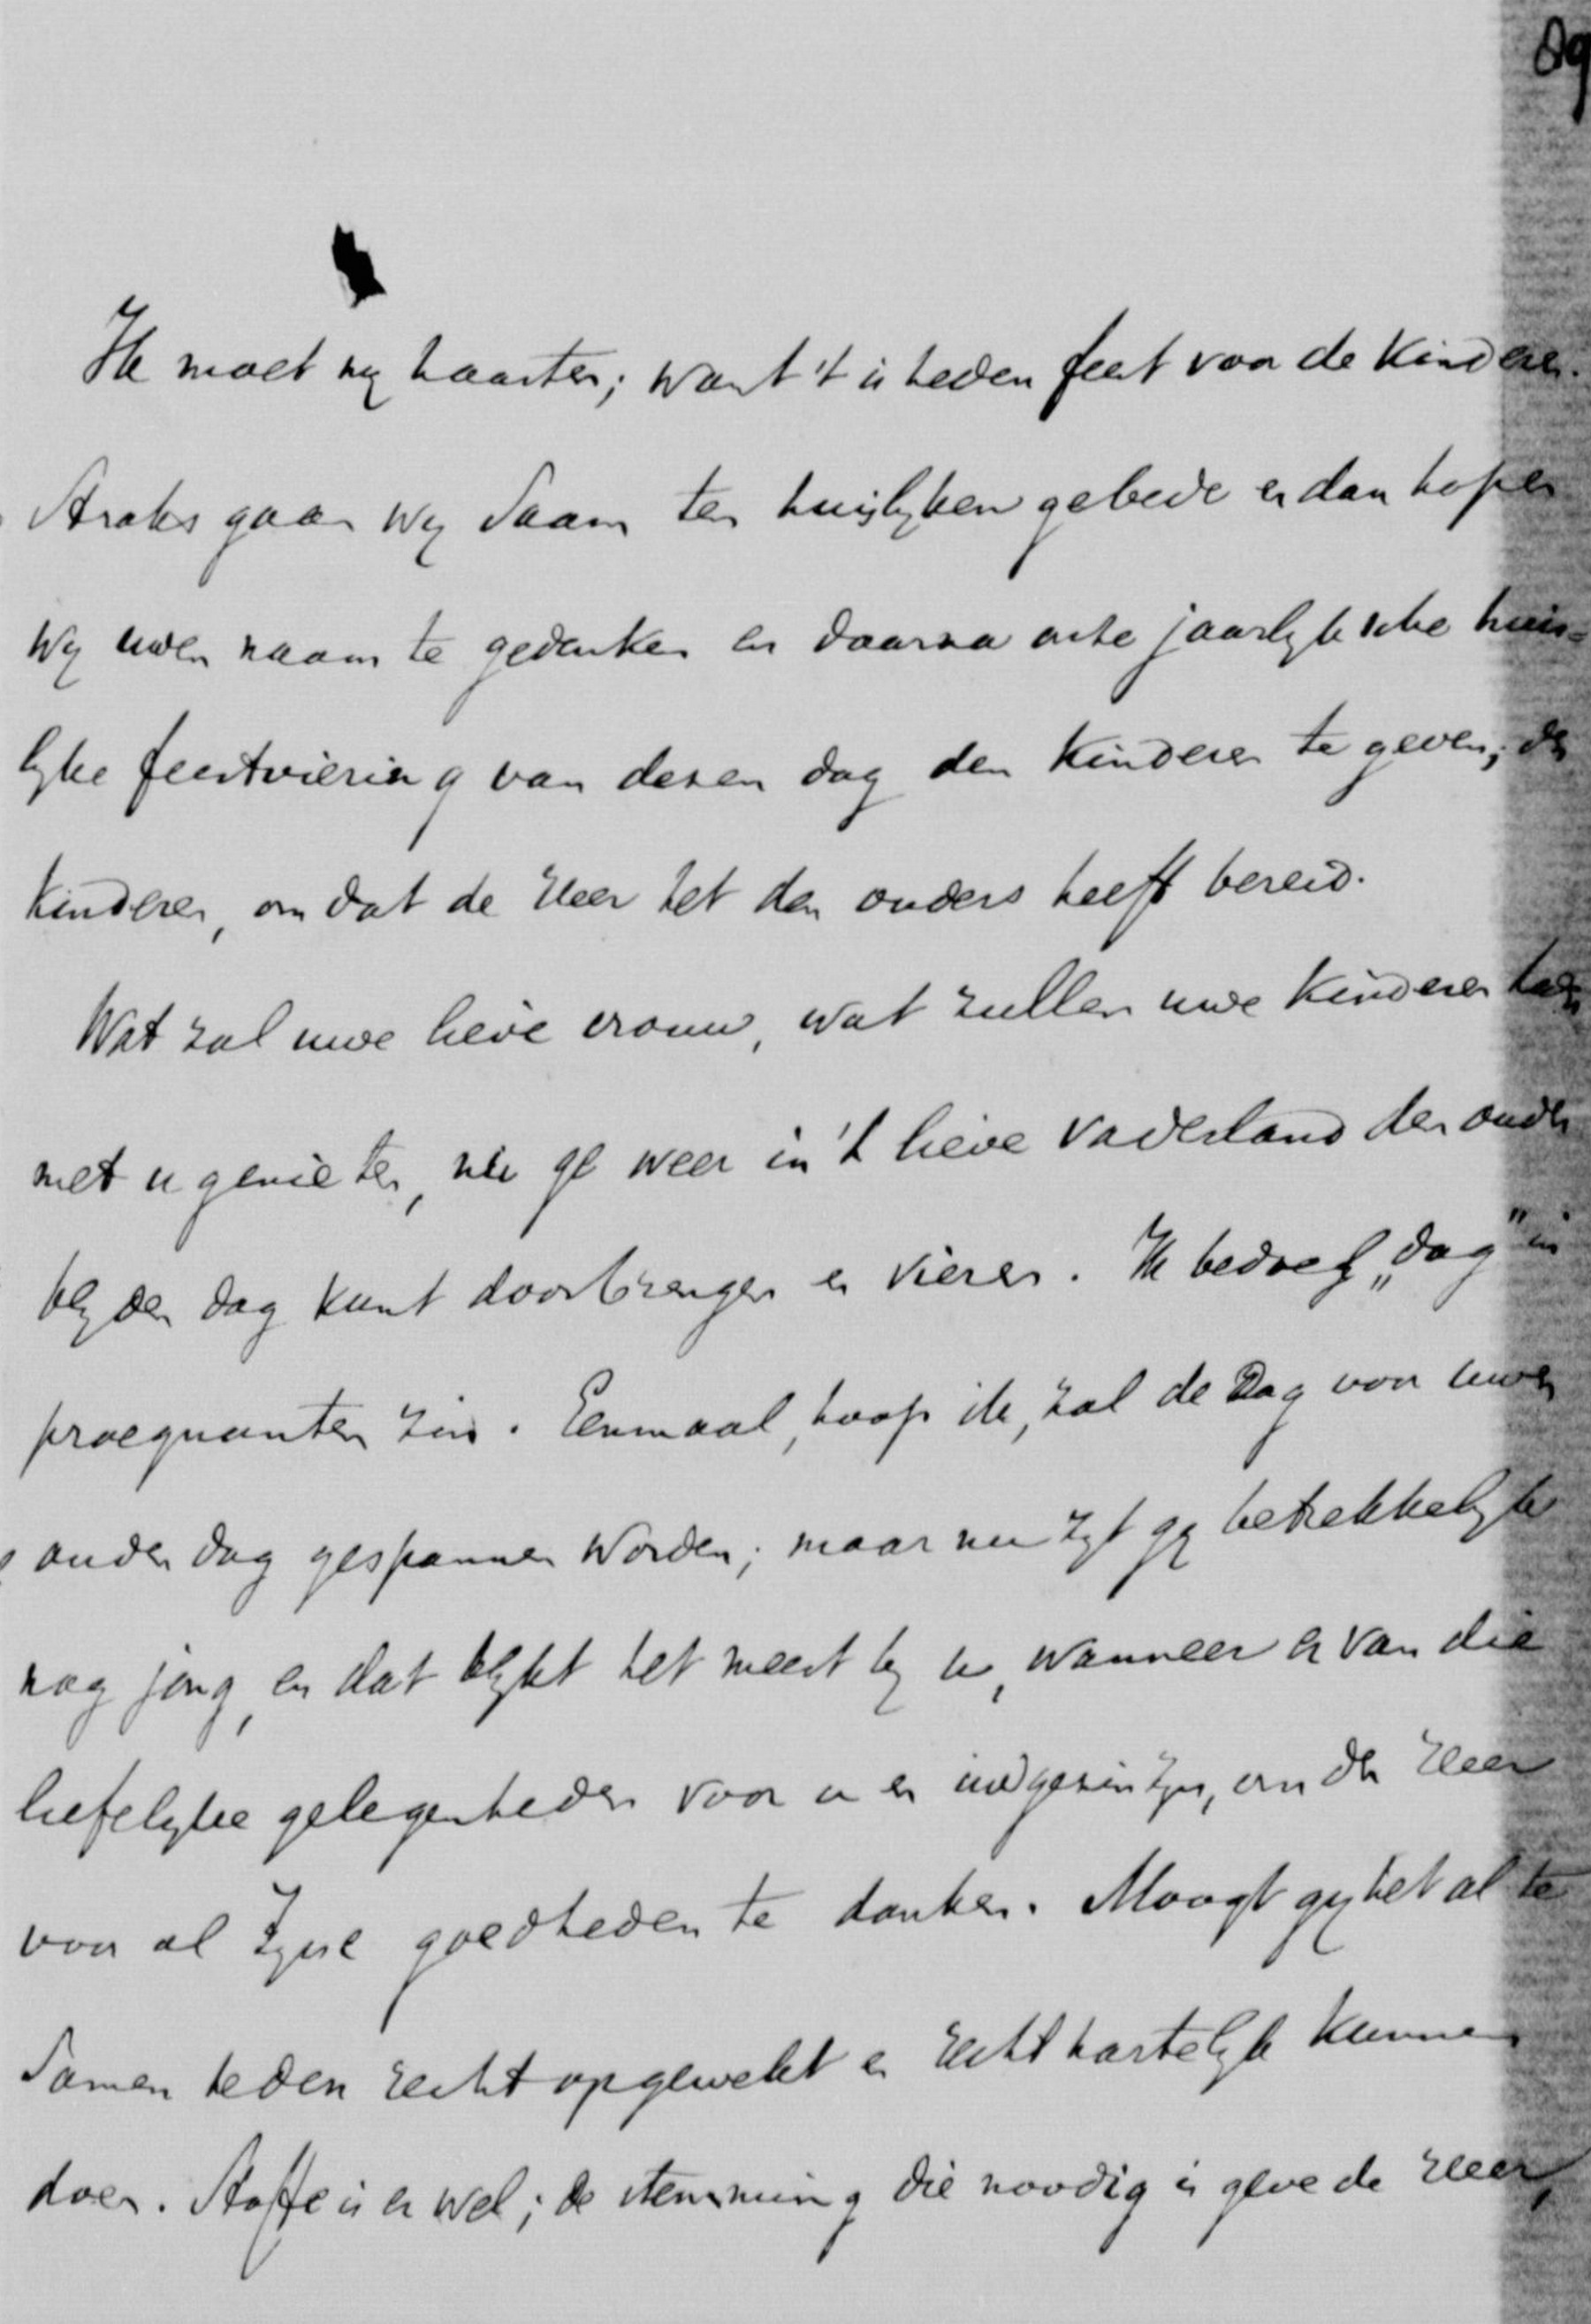 89
Ik moet my haasten; want 't is heden feest voor de kinderen.
Straks gaan wy saam ten huislyken gebede en dan hopen
wy uwen naam te gedenken en daarna onze jaarlyksche huis=
lyke feestviering van dezen dag den kinderen te geven; den
kinderen, omdat de Heer het den ouders heeft bereid.
Wat zal uwe lieve vrouw, wat zullen uwe kinderen
met u genieten, nu ge weer in 't lieve vaderland den ouden
blyden dag kunt doorbrengen en vieren. Ik bedoel „dag" in
praegnanten zin. Eenmaal, hoop ik, zal de Dag voor uwen
ouden dag gespannen worden; maar nu zyt gy betrekkelyk
nog jong, en dat blykt het meest by u, wanneer er van die
liefelyke gelegenheden voor u en uw gezin zyn, om den Heer
voor al Zyne goedheden te danken. Moogt gy het al te
samen heden recht opgewekt en recht hartelyk kunnen
doen. Stoffe is er wel; de stemming die noodig is geve de Heer,